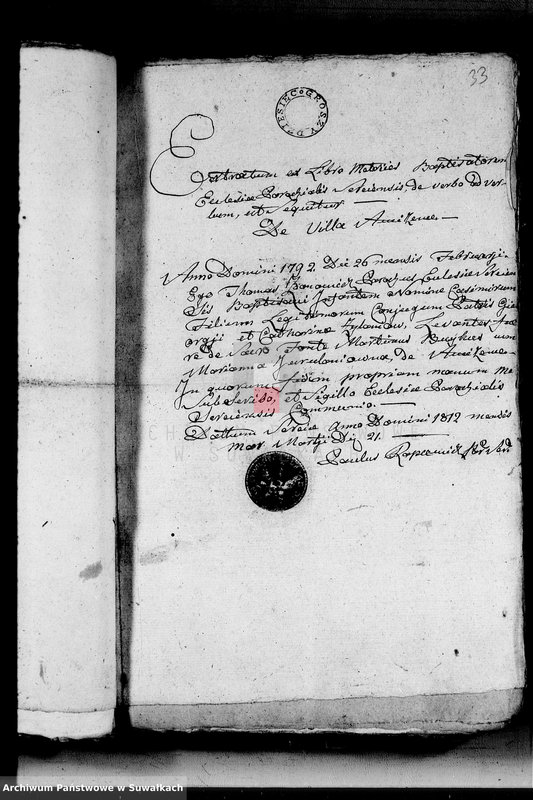 33
DZIESIĘC GROSZY
Extractum ex Libro Metrices Baptisatorum
Ecclesiae Parochialis Sereiensis de verbo ad ver-
bum, ut Sequitur
De Villa
Anno Domini 1792. Die 26 mensis Februarji
Ego Thomas Parochus Ecclesiae Sereien
Sis Baptisavi Infantem Nomine Casimirum
Filium Legitimorum Conjugum Patris Gie
orgii et Catharina Levantes fue
re de Sacro Fonte Martinus cum
Marianna de
In quorum fidem propriam manum me
Subscribo, et Sigillo Ecclesiae Parochialis
Sereiensis Communio.
Dattum Sereie Anno Domini 1812 mensis
mar Martji Die 21.
Paulus
Archiwum Państwowe w Suwałkach